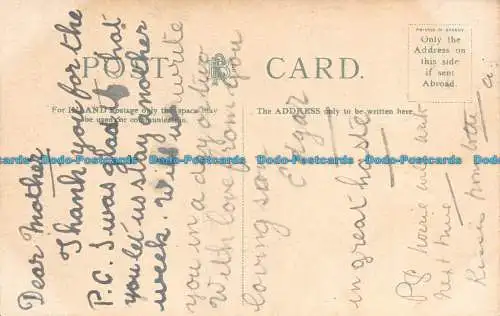 POST CARD.
PRINTED IN SAXONY
Only the
Address on
this side
if sent
Abroad.
For INLAND Postage only this space may
be used for communication.
The ADDRESS only to be written here.
Dear Mother
Thank you for the
P.C. I was glad that
you let us stay another
week. Will write
you in a day or two
With love from your
loving son
Edgar
in great haste
P.S.
next time
Kisses from
Postcards-Info Postcards-Info Postcards-Info Postcards-Info Postcards-Info Postcards-Info